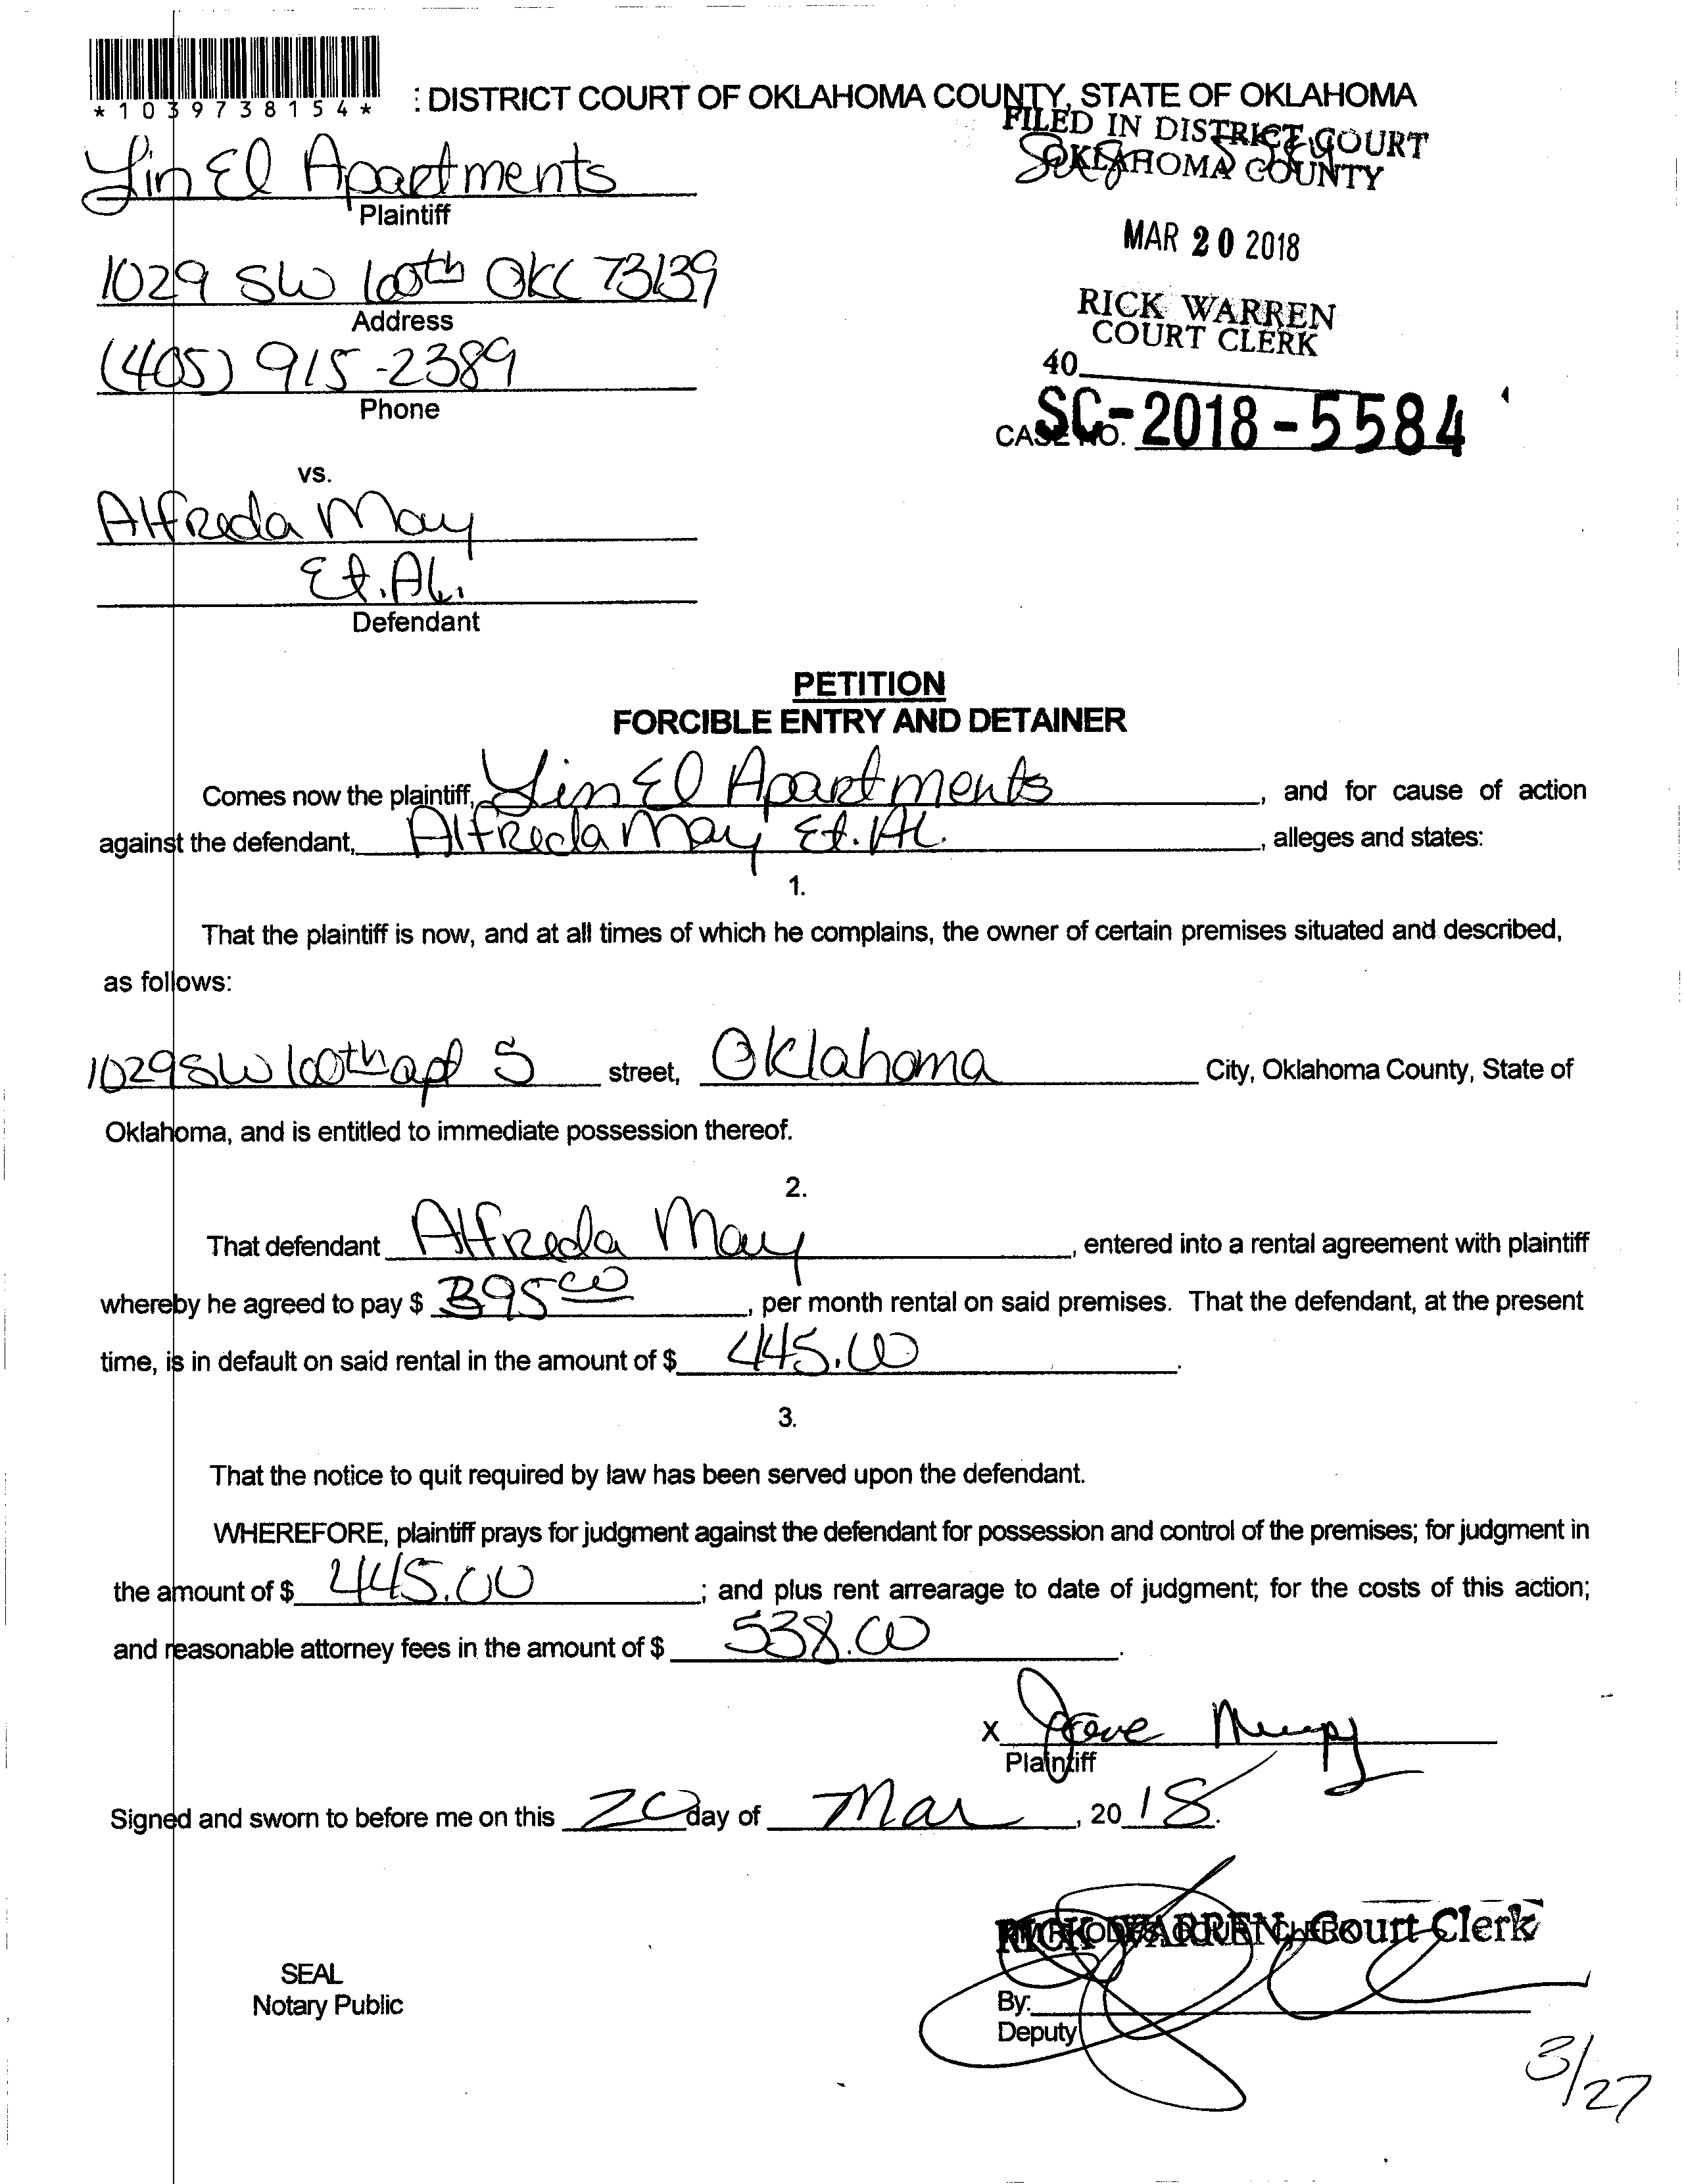 *1039738154*
: DISTRICT COURT OF OKLAHOMA COUNTY, STATE OF OKLAHOMA
FILED IN DISTRICT COURT
OKLAHOMA COUNTY
Lin El Apartments
Plaintiff
MAR 20 2018
1029 SW 100th OKC 73139
Address
RICK WARREN
COURT CLERK
(405) 915-2389
Phone
40
CASE NO. SC-2018-5584
vs.
Alfreda May
Et. Al.
Defendant
PETITION
FORCIBLE ENTRY AND DETAINER
Comes now the plaintiff, Lin El Apartments, and for cause of action
against the defendant, Alfreda May Et. Al., alleges and states:
1.
That the plaintiff is now, and at all times of which he complains, the owner of certain premises situated and described,
as follows:
1029 SW 100th apt S street, Oklahoma City, Oklahoma County, State of
Oklahoma, and is entitled to immediate possession thereof.
2.
That defendant Alfreda May, entered into a rental agreement with plaintiff
whereby he agreed to pay $ 395 00, per month rental on said premises. That the defendant, at the present
time, is in default on said rental in the amount of $ 445.00.
3.
That the notice to quit required by law has been served upon the defendant.
WHEREFORE, plaintiff prays for judgment against the defendant for possession and control of the premises; for judgment in
the amount of $ 445.00; and plus rent arrearage to date of judgment; for the costs of this action;
and reasonable attorney fees in the amount of $ 538.00.
X
Plaintiff
Signed and sworn to before me on this 20 day of Mar, 2018.
RICK WARREN, Court Clerk
SEAL
Notary Public
By:
Deputy
3/27